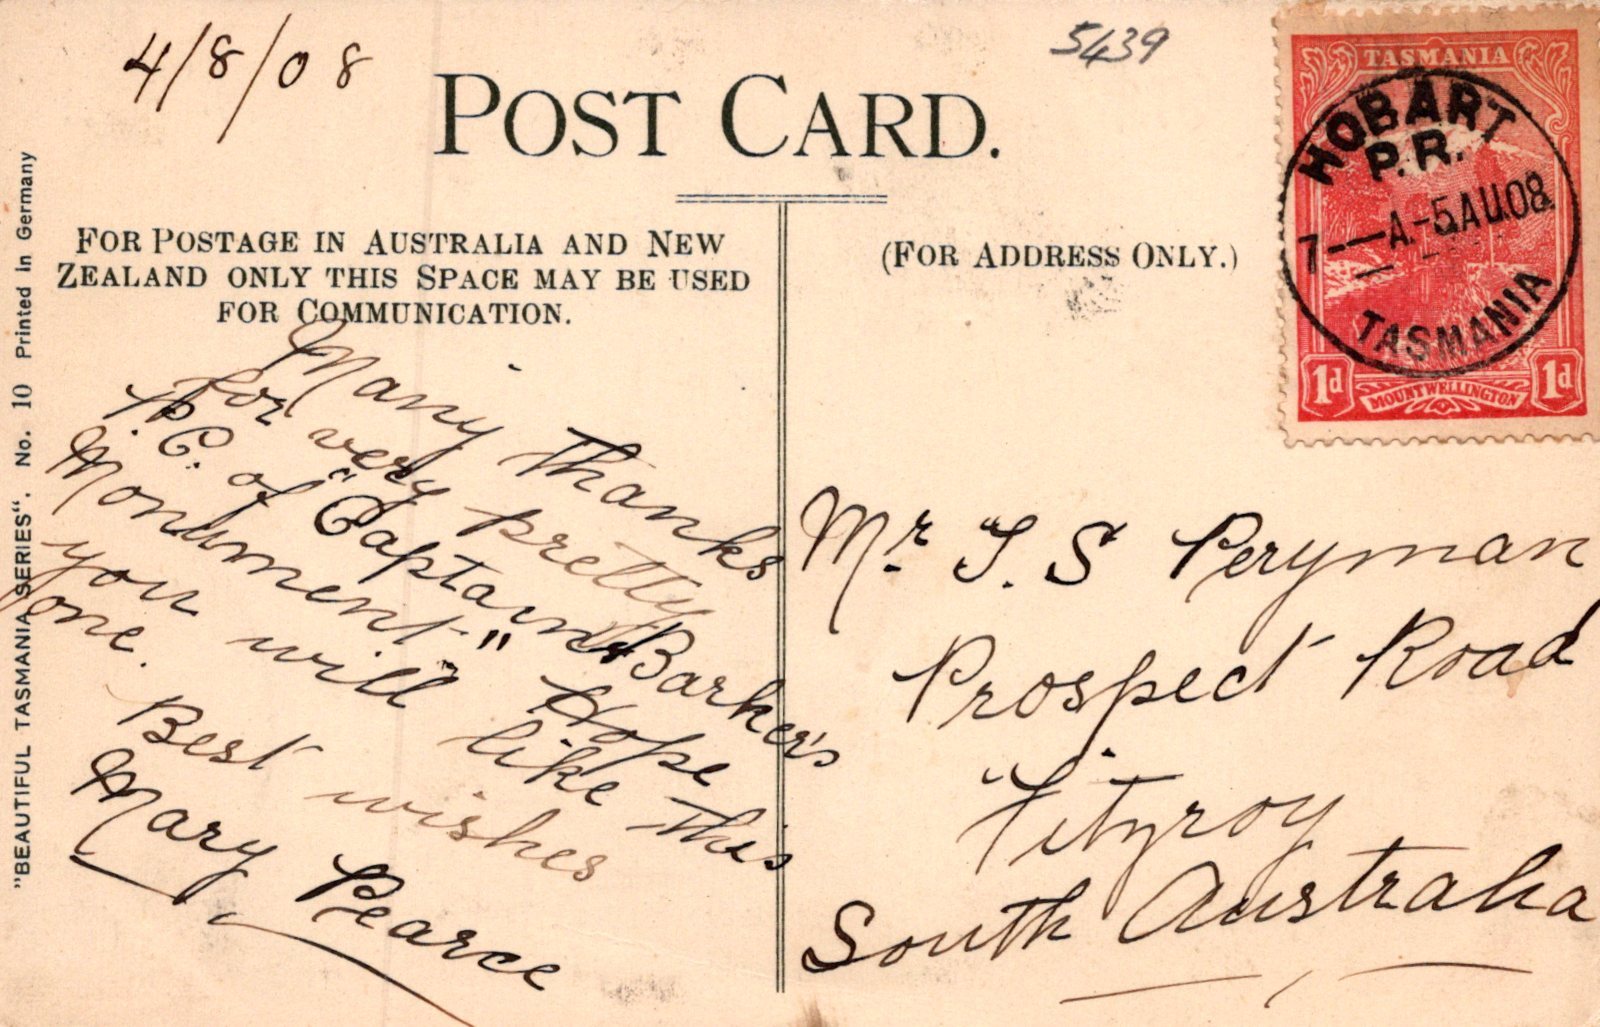 4/8/08
5439
POST CARD.
FOR POSTAGE IN AUSTRALIA AND NEW
ZEALAND ONLY THIS SPACE MAY BE USED
FOR COMMUNICATION.
(FOR ADDRESS ONLY.)
TASMANIA
HOBART
P.R.
7-—A-5AU08
TASMANIA
1d
MOUNT WELLINGTON
1d
Many thanks
for very pretty
P. C. of "Captain Barker's
Monument" Hope
you will like this
one.
Best wishes
Mary Pearce
Mr T. S Peryman
Prospect Road
Fitzroy
South Australia
"BEAUTIFUL TASMANIA SERIES". No. 10 Printed in Germany